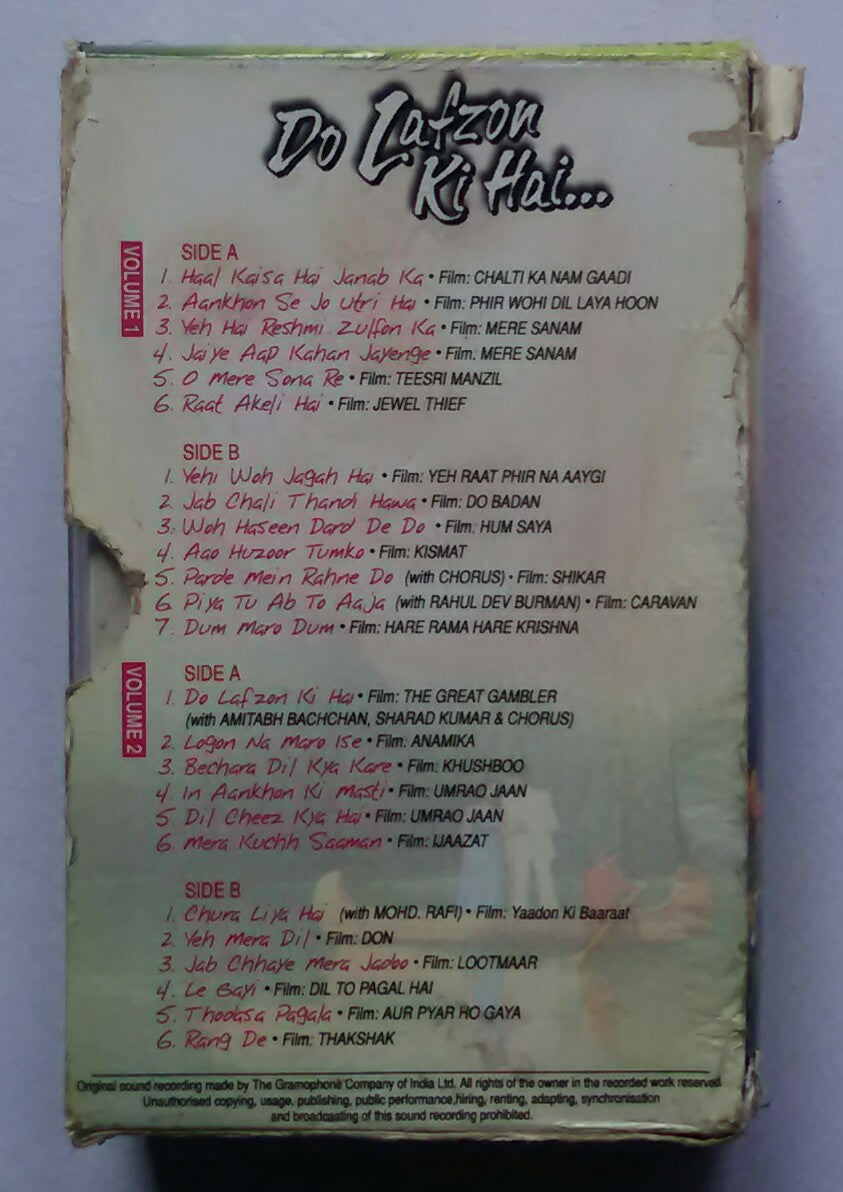 Do Lafzon
Ki Hai...
VOLUME 1
SIDE A
1. Haal Kaisa Hai Janab Ka • Film: CHALTI KA NAM GAADI
2. Aankhon Se Jo Utri Hai • Film: PHIR WOHI DIL LAYA HOON
3. Yeh Hai Reshmi Zulfon Ka • Film: MERE SANAM
4. Jaiye Aap Kahan Jayenge • Film: MERE SANAM
5. O Mere Sona Re • Film: TEESRI MANZIL
6. Raat Akeli Hai • Film: JEWEL THIEF
SIDE B
1. Yehi Woh Jagah Hai • Film: YEH RAAT PHIR NA AAYGI
2. Jab Chali Thandi Hawa • Film: DO BADAN
3. Woh Haseen Dard De Do • Film: HUM SAYA
4. Aao Huzoor Tumko • Film: KISMAT
5. Parde Mein Rahne Do (with CHORUS) • Film: SHIKAR
6. Piya Tu Ab To Aaja (with RAHUL DEV BURMAN) • Film: CARAVAN
7. Dum Maro Dum • Film: HARE RAMA HARE KRISHNA
VOLUME 2
SIDE A
1. Do Lafzon Ki Hai • Film: THE GREAT GAMBLER
(with AMITABH BACHCHAN, SHARAD KUMAR & CHORUS)
2. Logon Na Maro Ise • Film: ANAMIKA
3. Bechara Dil Kya Kare • Film: KHUSHBOO
4. In Aankhon Ki Masti • Film: UMRAO JAAN
5. Dil Cheez Kya Hai • Film: UMRAO JAAN
6. Mera Kuchh Saaman • Film: IJAAZAT
SIDE B
1. Chura Liya Hai (with MOHD. RAFI) • Film: Yaadon Ki Baaraat
2. Yeh Mera Dil • Film: DON
3. Jab Chhaye Mera Jadoo • Film: LOOTMAAR
4. Le Gayi • Film: DIL TO PAGAL HAI
5. Thodasa Pagala • Film: AUR PYAR HO GAYA
6. Rang De • Film: THAKSHAK
Original sound recording made by The Gramophone Company of India Ltd. All rights of the owner in the recorded work reserved.
Unauthorised copying, usage, publishing, public performance,hiring, renting, adapting, synchronisation
and broadcasting of this sound recording prohibited.